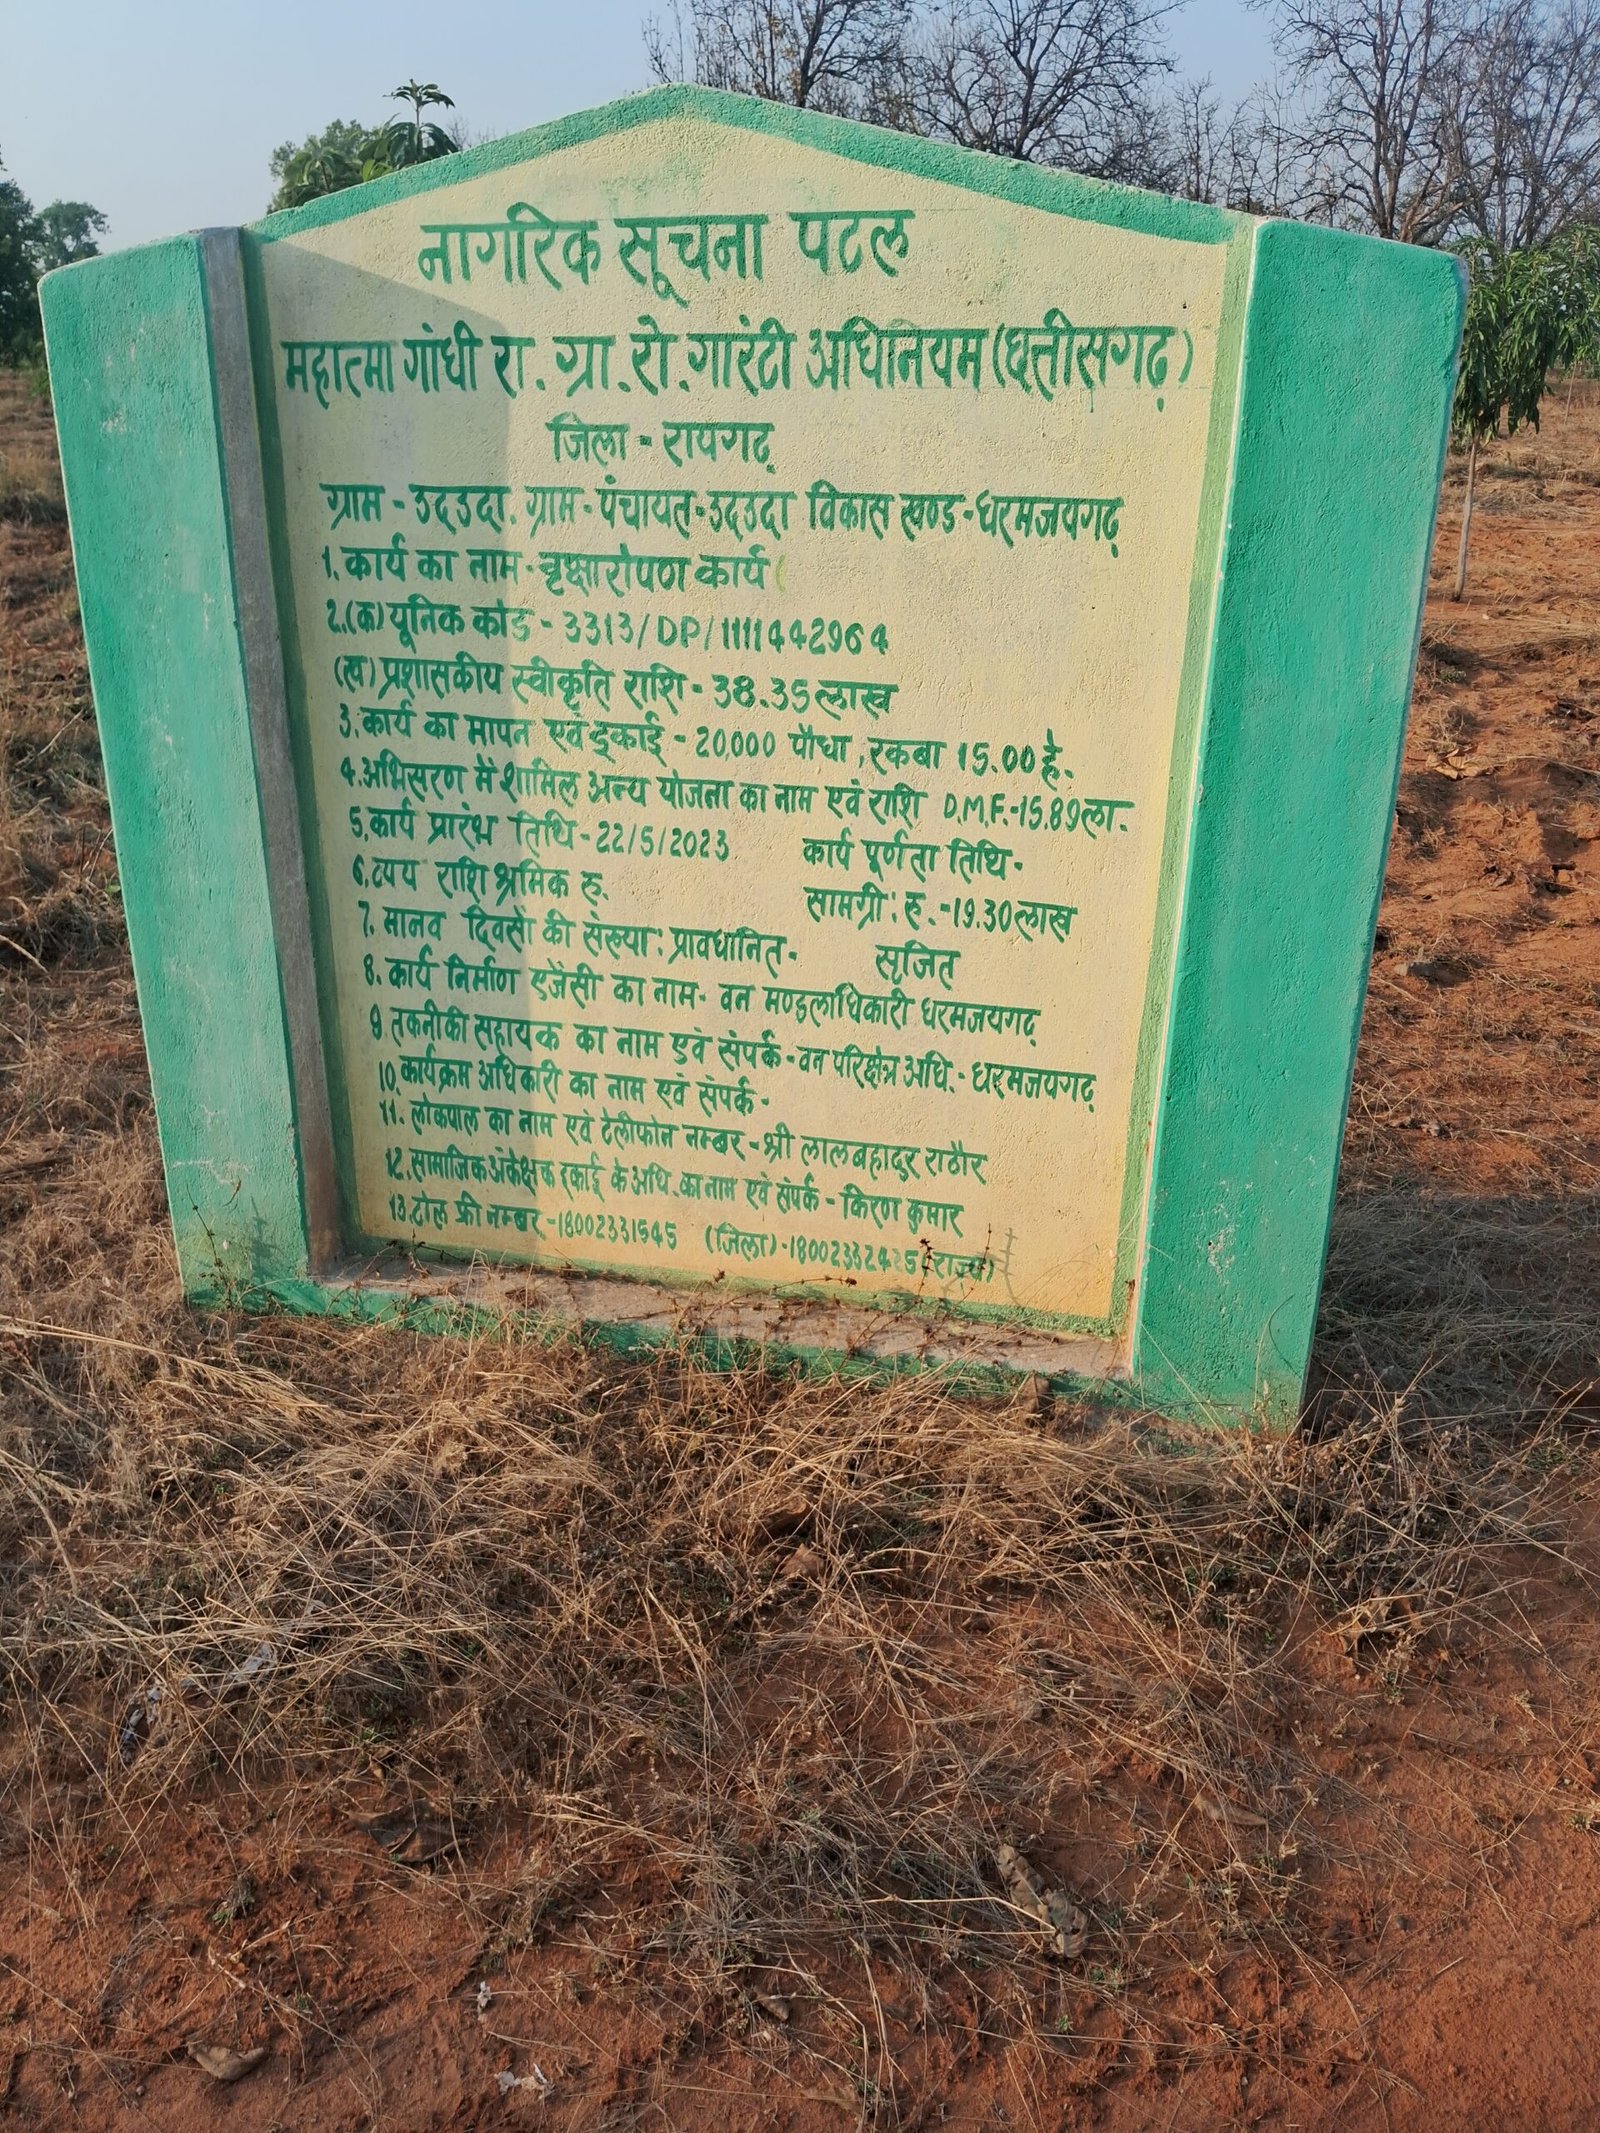 नागरिक सूचना पटल
महात्मा गांधी रा. ग्रा. रो. गारंटी अधिनियम (छत्तीसगढ़)
जिला - रायगढ़
ग्राम - उदउदा. ग्राम - पंचायत - उदउदा विकास खण्ड - धरमजयगढ़
1. कार्य का नाम - वृक्षारोपण कार्य
2. (क) यूनिक कोड - 3313/DP/1111442964
(ख) प्रशासकीय स्वीकृति राशि - 38.35 लाख
3. कार्य का मापन एवं इकाई - 20,000 पौधा, रकबा 15.00 हे.
4. अभिसरण में शामिल अन्य योजना का नाम एवं राशि D.M.F. - 15.89 ला.
5. कार्य प्रारंभ तिथि - 22/5/2023 कार्य पूर्णता तिथि -
6. व्यय राशि श्रमिक रु. सामग्री: रु. - 19.30 लाख
7. मानव दिवसों की संख्या: प्रावधानित - सृजित
8. कार्य निर्माण एजेंसी का नाम - वन मण्डलाधिकारी धरमजयगढ़
9. तकनीकी सहायक का नाम एवं संपर्क - वन परिक्षेत्र अधि. - धरमजयगढ़
10. कार्यक्रम अधिकारी का नाम एवं संपर्क -
11. लोकपाल का नाम एवं टेलीफोन नम्बर - श्री लालबहादुर राठौर
12. सामाजिक अंकेक्षक इकाई के अधि. का नाम एवं संपर्क - किरण कुमार
13. टोल फ्री नम्बर - 18002331545 (जिला) - 18002332425 (राज्य)